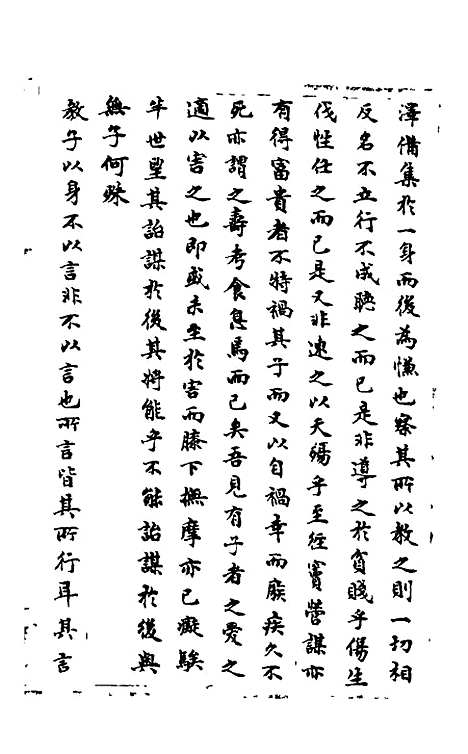 澤備集於一身而後為慊也察其所以教之則一切相
反名不立行不成聽之而已是非導之於貧賤乎傷生
伐性任之而已是又非速之以夭殤乎至徑竇營謀亦
有得富貴者不特禍其子而又以自禍幸而廢疾久不
死亦謂之壽考食息焉而已矣吾見有子者之愛之
適以害之也即或未至於害而膝下撫摩亦已癡騃
半世望其詒謀於後其將能乎不能詒謀於後與
無子何殊
教子以身不以言非不以言也所言皆其所行耳其言